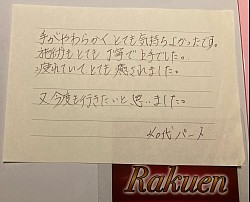 手がやわらかくとても気持ちよかったです。
施術もとても丁寧で上手でした。
疲れていてとても癒されました。
又今度も行きたいと思いました。
40代パート
Rakuen